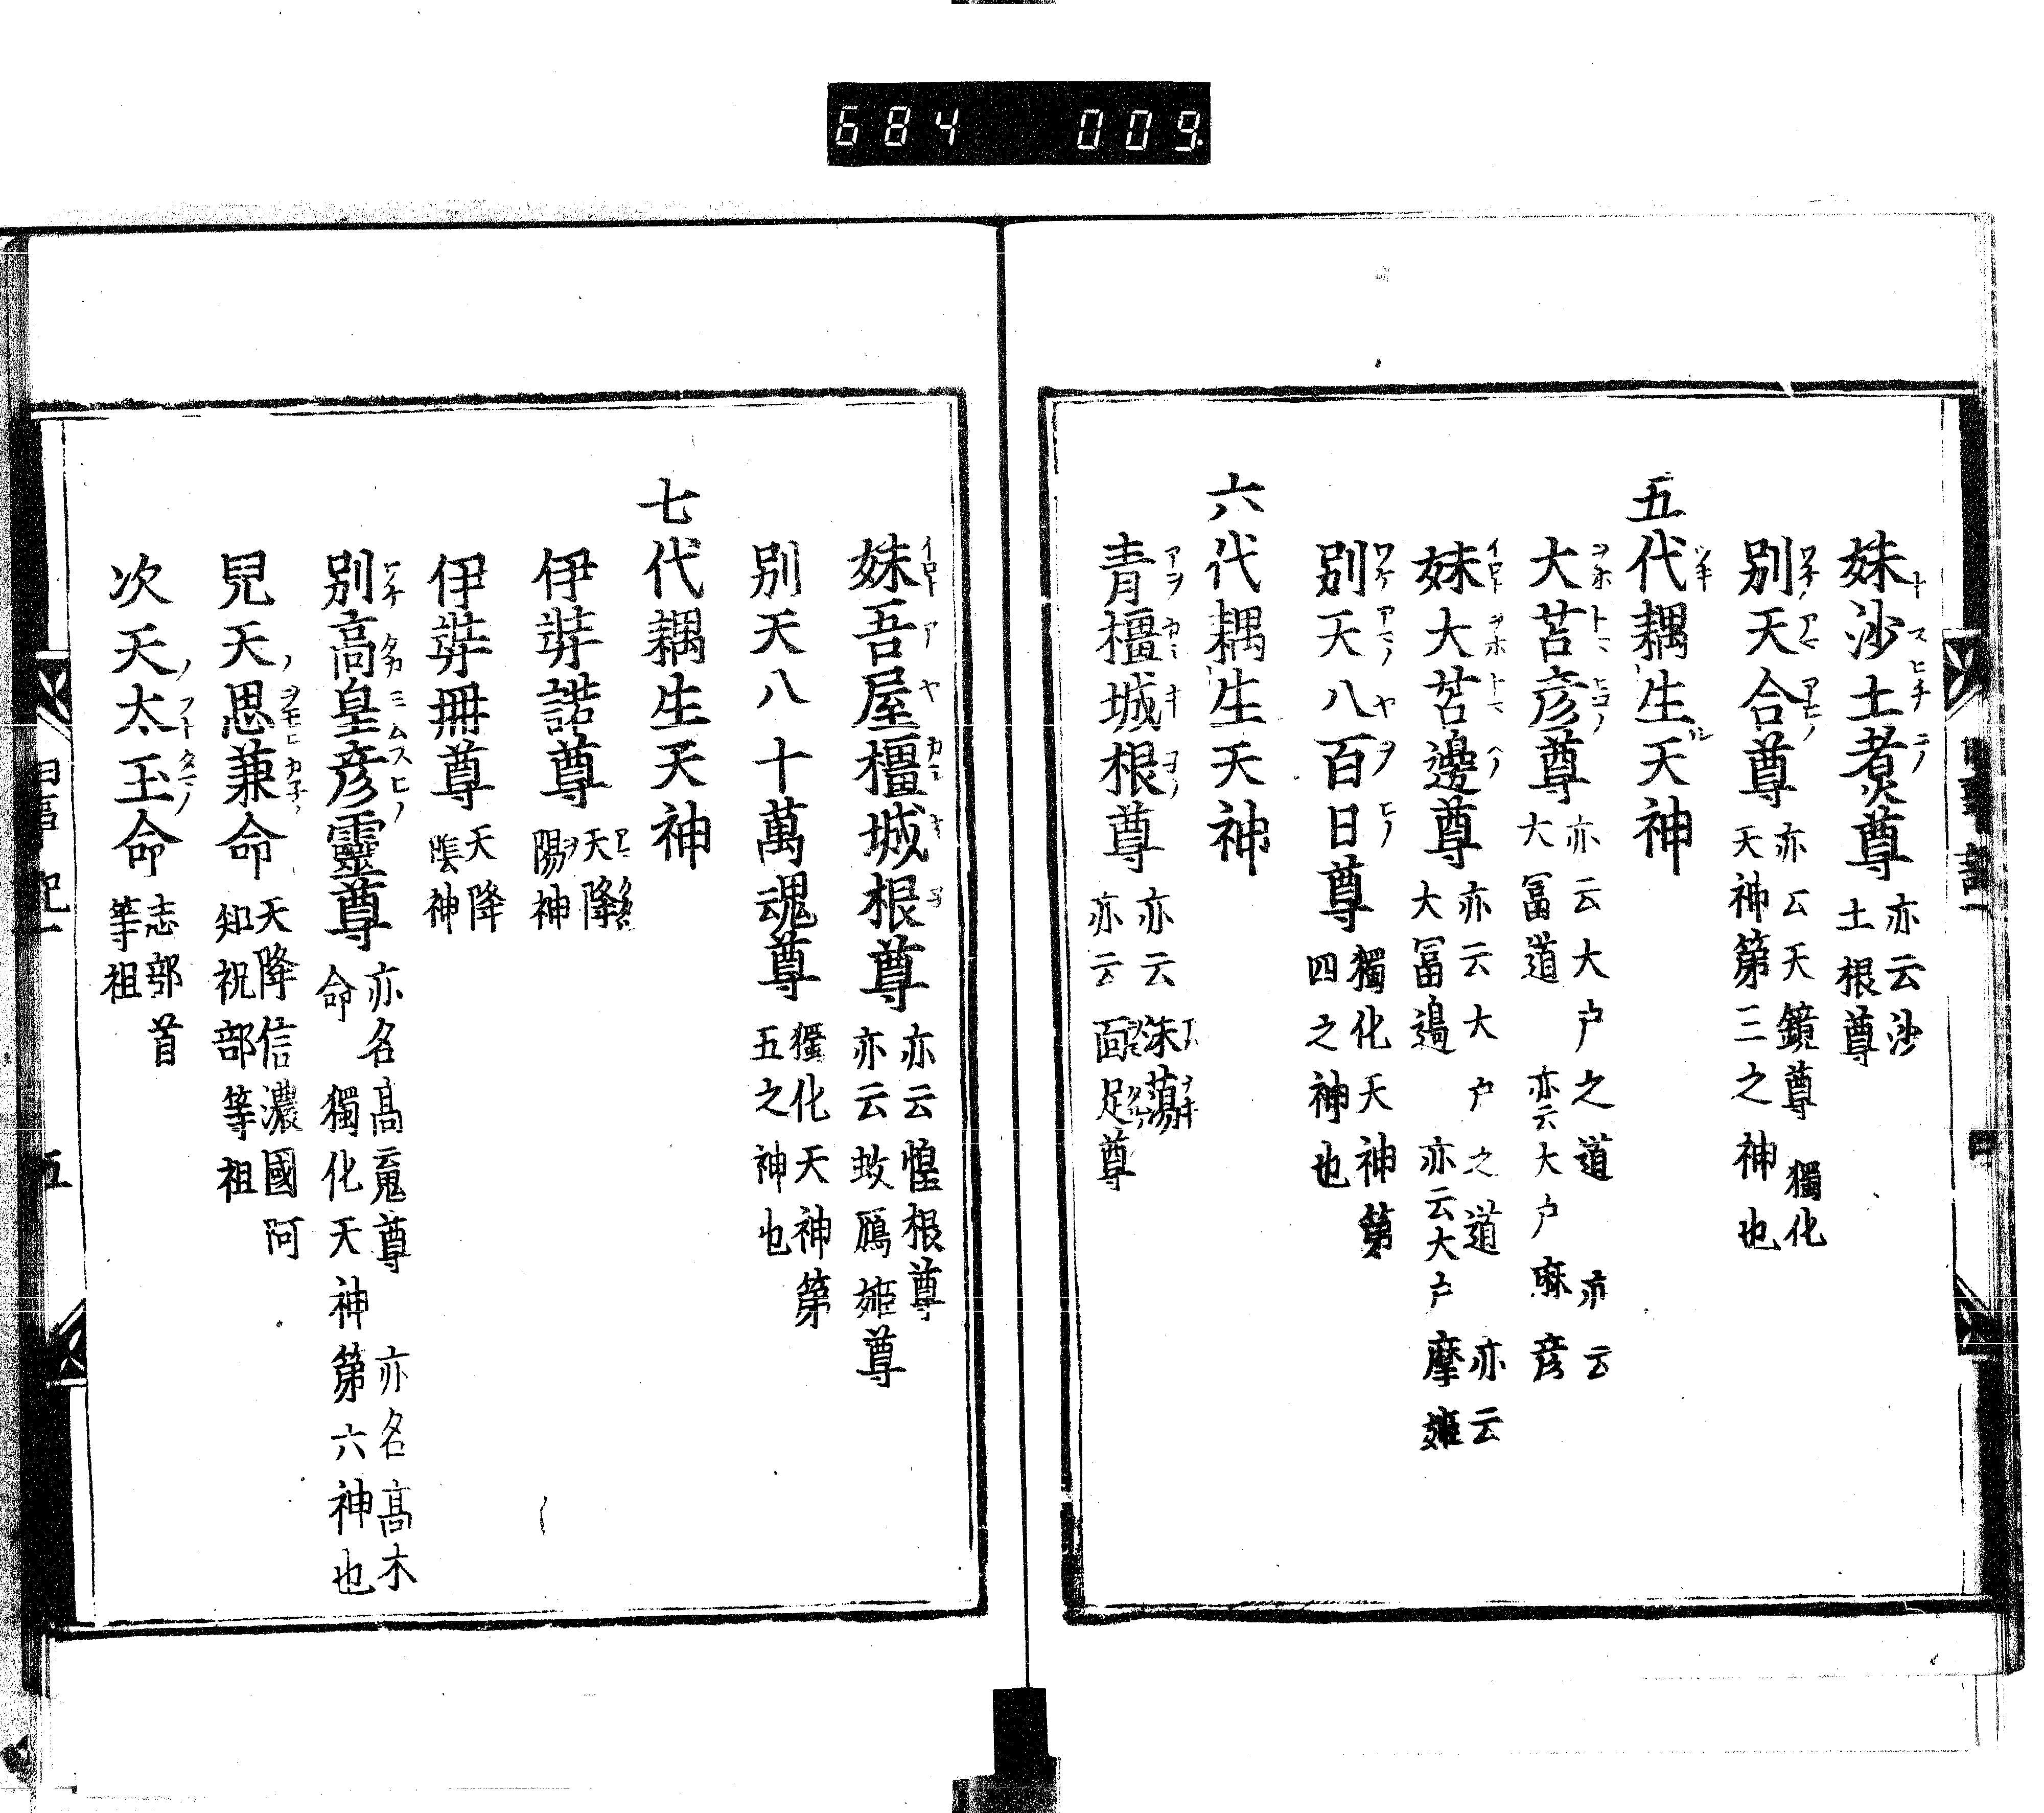 684 009
妹沙土煑尊 亦云沙
土根尊
別天合尊 亦云天鏡尊 獨化
天神第三之神也
五代耦生天神
大苫彦尊 亦云大戸之道 亦云
大冨道 亦云大戸麻彦
妹大苫邊尊 亦云大戸之道 亦云
大冨邉 亦云大戸摩姫
別天八百日尊 獨化天神第
四之神也
六代耦生天神
青橿城根尊 亦云沫蕩
亦云面足尊
妹吾屋橿城根尊 亦云惶根尊
亦云蚊鴈姫尊
別天八十萬魂尊 獨化天神第
五之神也
七代耦生天神
伊弉諾尊 天降
陽神
伊弉冊尊 天降
陰神
別高皇彦靈尊 亦名高魂尊 亦名高木
命 獨化天神第六神也
兒天思兼命 天降信濃國阿
知祝部等祖
次天太玉命 志部首
等祖
五